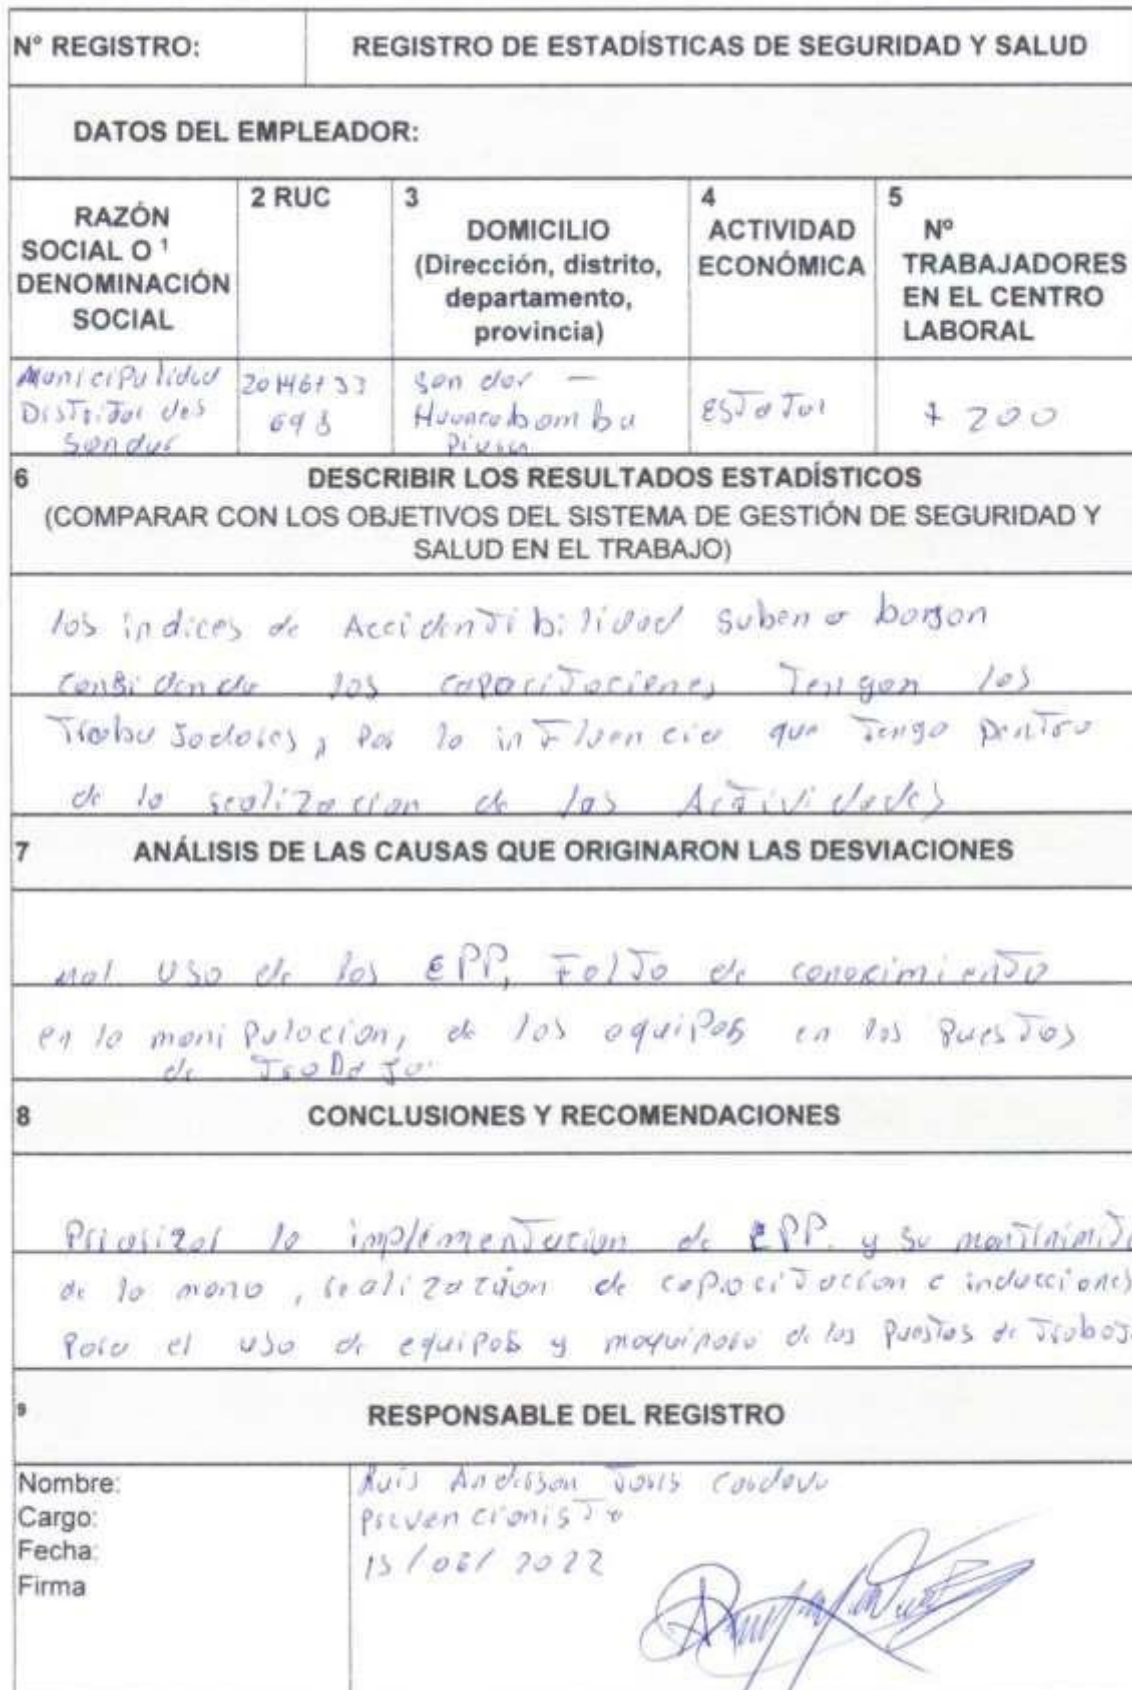 N° REGISTRO:
REGISTRO DE ESTADÍSTICAS DE SEGURIDAD Y SALUD
DATOS DEL EMPLEADOR:
RAZÓN
SOCIAL O 1
DENOMINACIÓN
SOCIAL
2 RUC
3
DOMICILIO
(Dirección, distrito,
departamento,
provincia)
4
ACTIVIDAD
ECONÓMICA
5
N°
TRABAJADORES
EN EL CENTRO
LABORAL
Municipalidad
Distrital des
Sondor
sondor -
Huancabamba
Piura
Estatal
+ 200
6
DESCRIBIR LOS RESULTADOS ESTADÍSTICOS
(COMPARAR CON LOS OBJETIVOS DEL SISTEMA DE GESTIÓN DE SEGURIDAD Y
SALUD EN EL TRABAJO)
los indices de Accidentibilidad suben o
los capacitaciones Tengan los
Trabajadores, Por la influencia que Tenga Dentro
de la realizacion de las Actividades
7
ANÁLISIS DE LAS CAUSAS QUE ORIGINARON LAS DESVIACIONES
mal uso de los EPP, Falta de conocimiento
en la manipulacion, de los equipos en los Puestos
de Trabajo.
8
CONCLUSIONES Y RECOMENDACIONES
Priorizar la implementacion de EPP. y su
de la mano, realización de capacitaccion e inducciones
Para el uso de equipos y maquinara de los Puestos de Trabajo.
9
RESPONSABLE DEL REGISTRO
Nombre:
Cargo:
Fecha:
Firma
Cordova
Prevencionista
15/06/2022